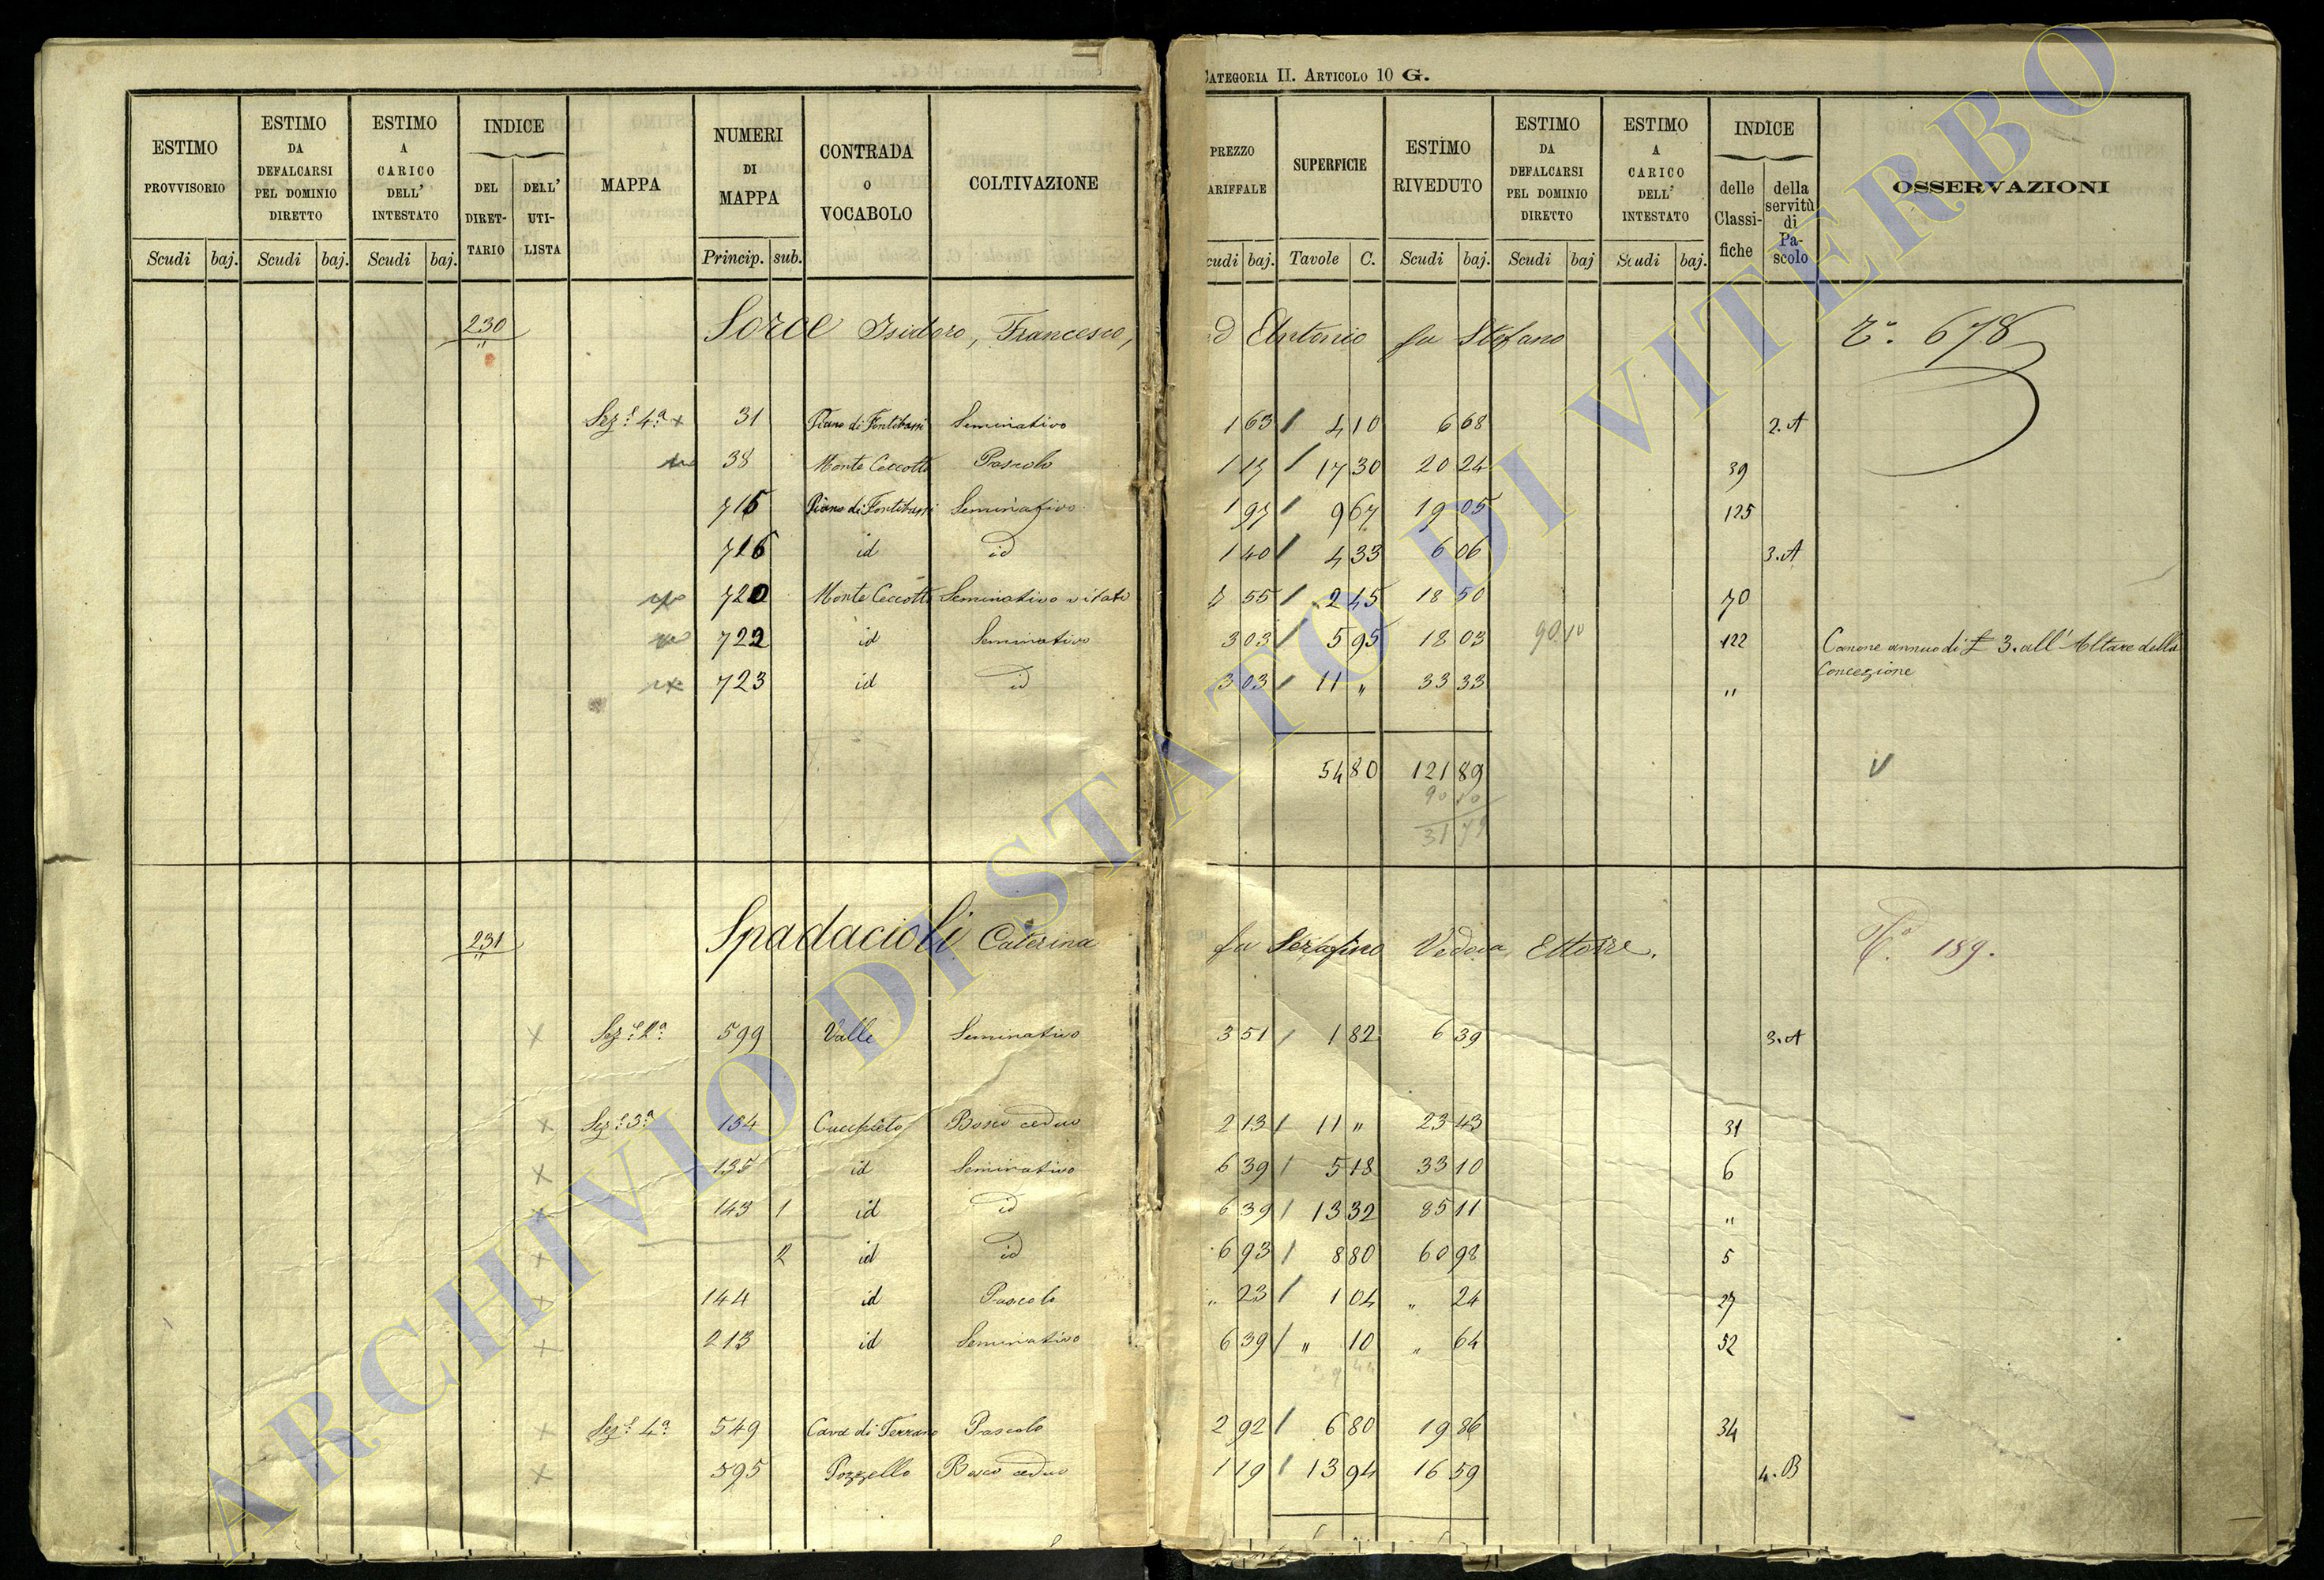 CATEGORIA II. ARTICOLO 10 G.
ESTIMO PROVVISORIO | ESTIMO DA DEFALCARSI PEL DOMINIO DIRETTO | ESTIMO A CARICO DELL' INTESTATO | INDICE | MAPPA | NUMERI DI MAPPA | CONTRADA O VOCABOLO | COLTIVAZIONE | PREZZO ARIFFALE | SUPERFICIE | ESTIMO RIVEDUTO | ESTIMO DA DEFALCARSI PEL DOMINIO DIRETTO | ESTIMO A CARICO DELL' INTESTATO | INDICE | OSSERVAZIONI
DEL DIRET-TARIO | DELL' UTI-LISTA | delle Classi-fiche | della servitù di Pa-scolo
Scudi | baj. | Scudi | baj. | Scudi | baj. | Princip. | sub. | cudi | baj. | Tavole | C. | Scudi | baj. | Scudi | baj | Scudi | baj.
230 Sorce Isidoro, Francesco, ed Antonio fu Stefano 678
Sez.e 4.a 31 Piano di Fontibassi Seminativo 1 63 / 4 10 6 68 2.A
38 Monte Ceccotto Pascolo 1 17 / 17 30 20 24 39
715 Piano di Fontibassi Seminativo 1 97 / 9 67 19 05 125
716 id id 1 40 / 4 33 6 06 3.A
720 Monte Ceccotto Seminativo vitato 7 55 / 2 45 18 50 70
722 id Seminativo 3 03 / 5 95 18 03 90 10 122 Canone annuo di £ 3. all'Altare della
Concezione
723 id id 3 03 / 11 " 33 33 "
54 80 121 89
90 10
31 79
231 Spadacioli Caterina fu Serafino Vedova Ettorre. 189.
Sez.e 2.a 599 Valle Seminativo 3 51 / 1 82 6 39 3.A
Sez.e 3.a 134 Bosco ceduo 2 13 / 11 " 23 43 31
135 id Seminativo 6 39 / 5 18 33 10 6
143 1 id id 6 39 / 13 32 85 11 "
2 id id 6 93 / 8 80 60 98 5
144 id Pascolo " 23 / 1 04 " 24 27
213 id Seminativo 6 39 / " 10 " 64 52
39 44
Sez.e 4.a 549 Cava di Terrano Pascolo 2 92 / 6 80 19 86 34
595 Pozzello Bosco ceduo 1 19 / 13 94 16 59 4.B
ARCHIVIO DI STATO DI VITERBO